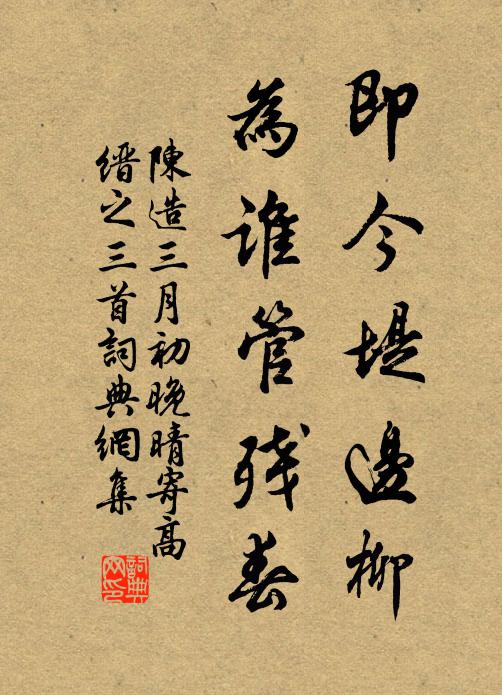 即今堤邊柳
為誰管殘春
陳造三月初晚晴寄高
縉之三首詞典網集
詞典
网印